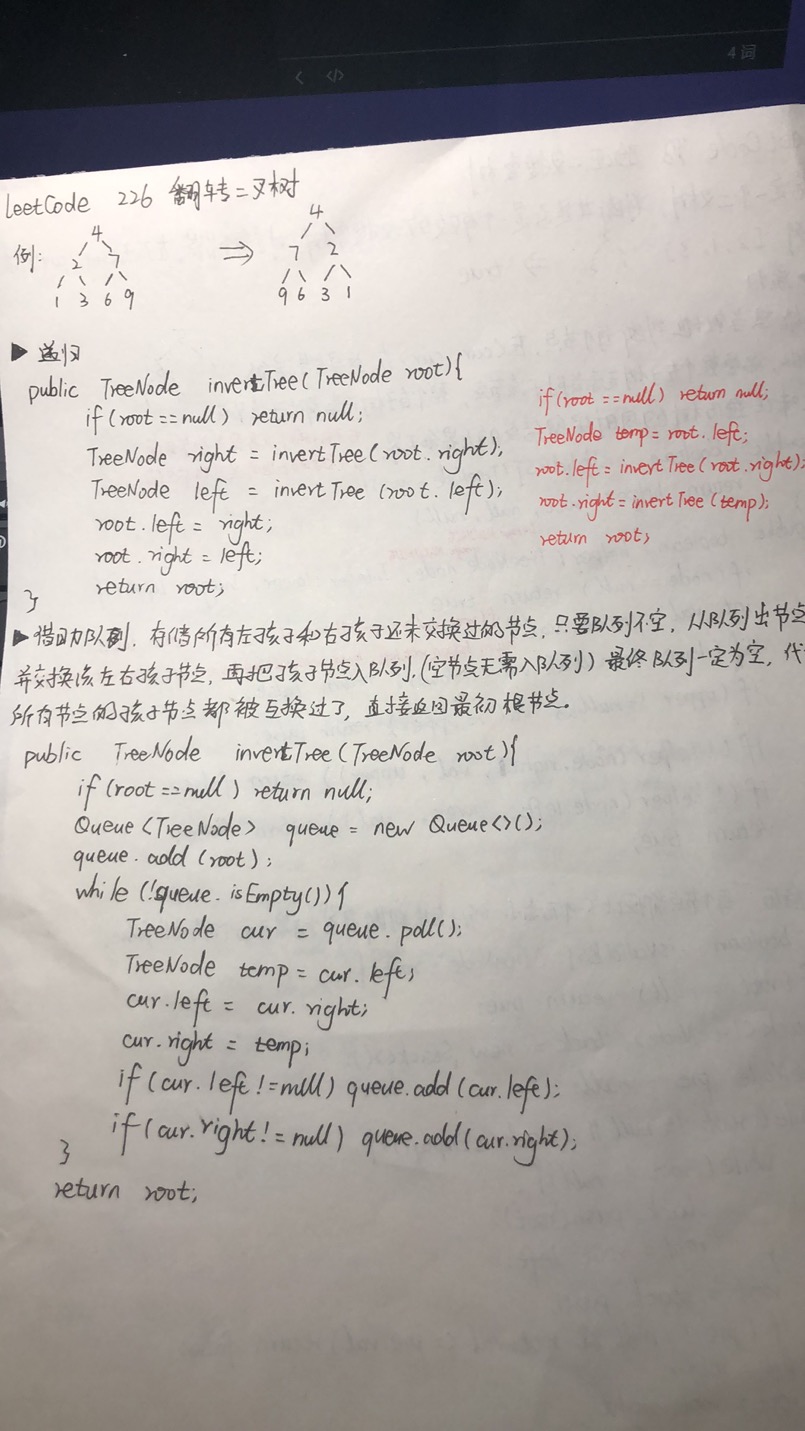 4 词
leetCode 226 翻转二叉树
例:
4
2 7
1 3 6 9
⇒
4
7 2
9 6 3 1
▶ 递归
public TreeNode invertTree(TreeNode root){
if(root == null) return null;
TreeNode right = invertTree(root.right);
TreeNode left = invertTree (root.left);
root.left = right;
root.right = left;
return root;
}
if(root ==null) return null;
TreeNode temp = root.left;
root.left = invertTree(root.right);
root.right = invertTree(temp);
return root;
▶借助队列, 存储所有左孩子和右孩子还未交换过的节点, 只要队列不空, 从队列出节点
并交换该左右孩子节点, 再把孩子节点入队列.(空节点无需入队列) 最终队列一定为空, 代
所有节点的孩子节点都被互换过了, 直接返回最初根节点。
public TreeNode invertTree(TreeNode root){
if(root ==null) return null;
Queue<TreeNode> queue = new Queue<>();
queue.add(root);
while (!queue.isEmpty()){
TreeNode cur = queue.poll();
TreeNode temp = cur.left;
cur.left = cur.right;
cur.right = temp;
if(cur.left !=null) queue.add(cur.left);
if(cur.right != null) queue.add(cur.right);
}
return root;